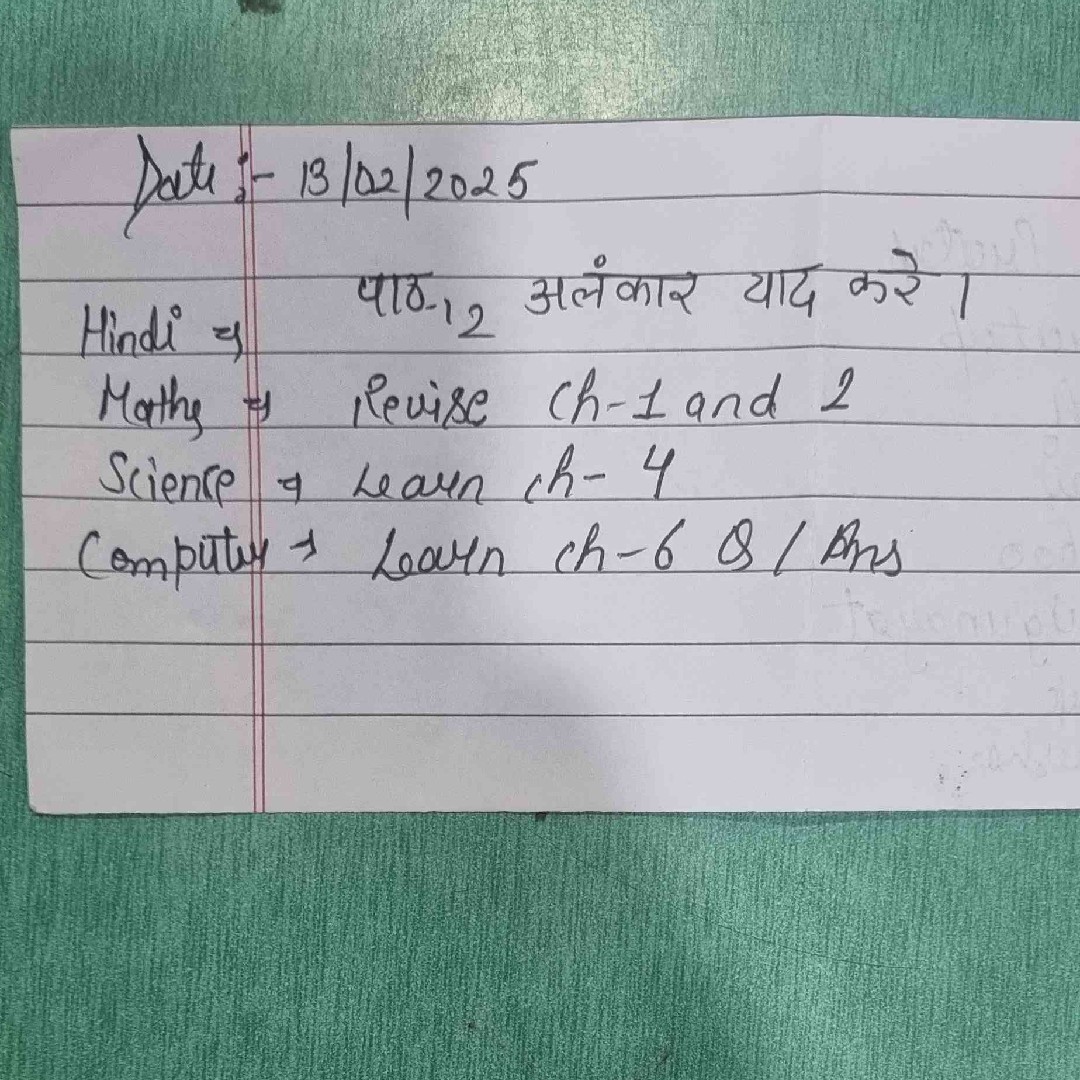 Date :- 13/02/2025
Hindi → पाठ-12 अलंकार याद करे।
Maths → Revise Ch-1 and 2
Science → Learn ch- 4
Computer → Learn ch-6 Q / Ans